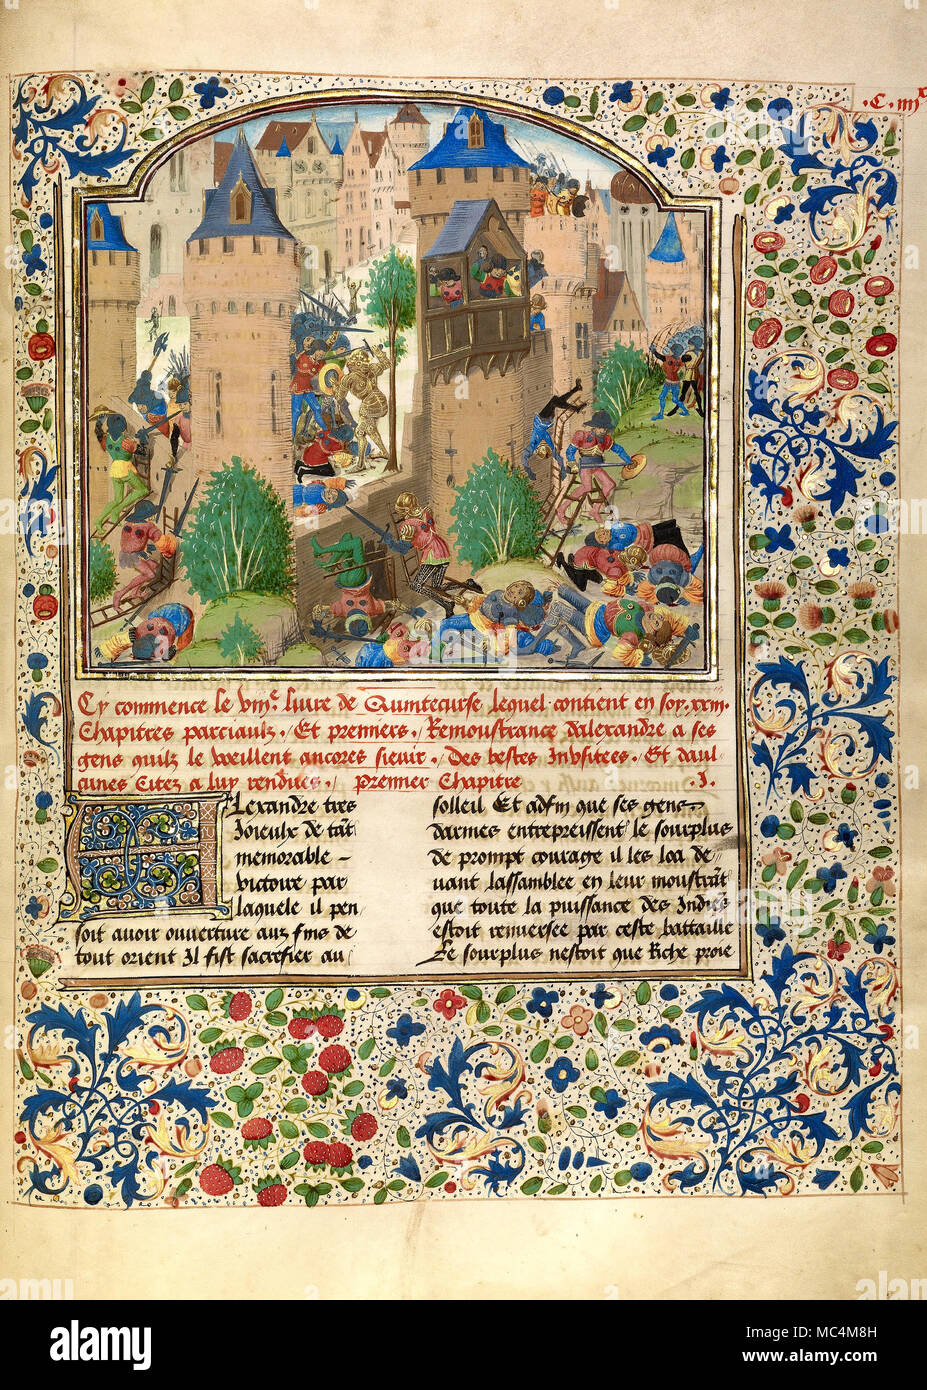 .C. iiij
Cy commence le viije. liure de Quintecurse lequel contient en soy .xxiij.
Chapitres parciaulx . Et premiers . Remoustrance dalexandre a ses
gens quilz le veillent ancores sieuir . Des bestes Inusitees . Et daul-
cunes Citez a luy rendues . Premier Chapitre . J .
ALexandre tres
Joieulx de tāt
memorable -
victoire par
laquele il pen
soit auoir ouuerture aux fins de
tout orient Il fist sacrefier au
solleil Et adfin que ses gens
darmes entrepreissent le sourplus
de prompt courage il les loa de-
uant lassamblee en leur moustrāt
que toute la puissance des Indes
estoit renuersee par ceste battaille
Le sourplus nestoit que Riche proie
a
alamy
alamy
Image ID: MC4M8H
www.alamy.com